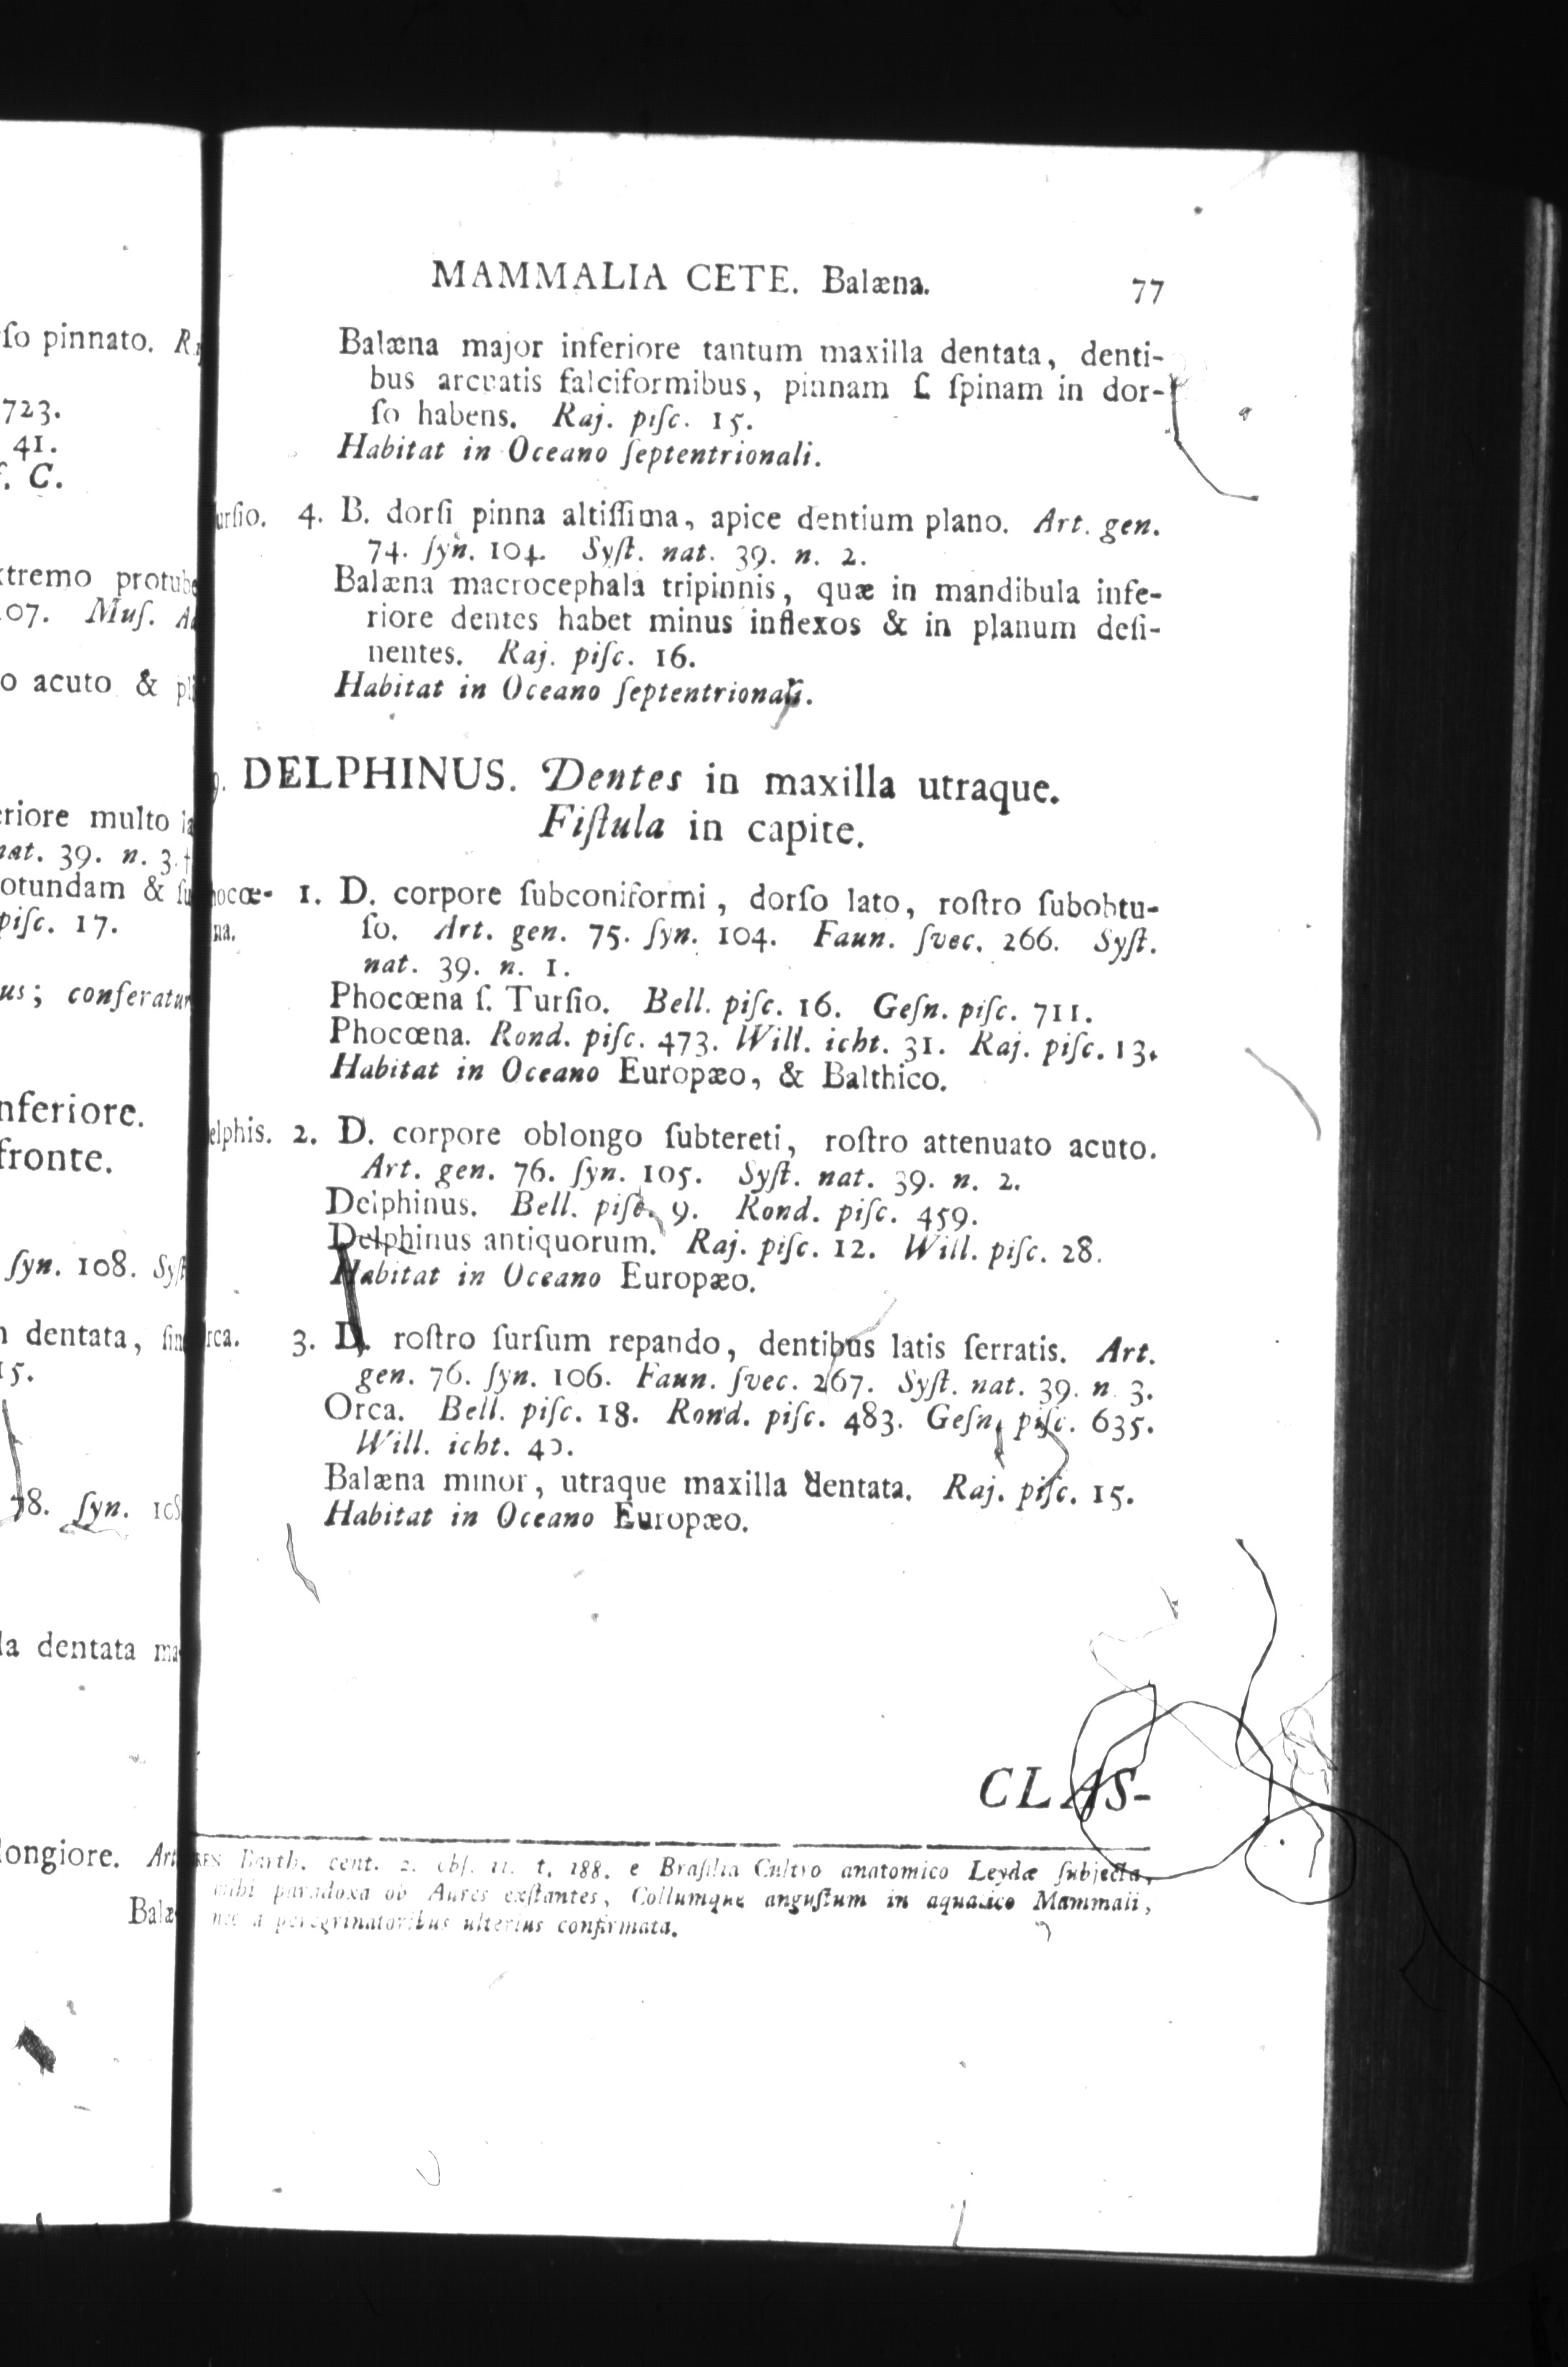 ſo pinnato.
723.
41.
C.
07. Muſ.
o acuto &
riore multo
39. n. 3.
otundam &
piſc. 17.
us; conferatur
nferiore.
fronte.
ſyn. 108. Syſt
dentata,
15.
78. ſyn. 108
la dentata
longiore. Art
Balæ-
MAMMALIA CETE. Balæna. 77
Balæna major inferiore tantum maxilla dentata, denti-
bus arcuatis falciformibus, pinnam ſ. ſpinam in dor-
ſo habens. Raj. piſc. 15.
Habitat in Oceano ſeptentrionali.
urſio. 4. B. dorſi pinna altiſſima, apice dentium plano. Art. gen.
74. ſyn. 104. Syſt. nat. 39. n. 2.
Balæna macrocephala tripinnis, quæ in mandibula infe-
riore dentes habet minus inflexos & in planum deſi-
nentes. Raj. piſc. 16.
Habitat in Oceano ſeptentrionali.
9. DELPHINUS. Dentes in maxilla utraque.
Fiſtula in capite.
hocœ- 1. D. corpore ſubconiformi, dorſo lato, roſtro ſubobtu-
na. ſo. Art. gen. 75. ſyn. 104. Faun. ſvec. 266. Syſt.
nat. 39. n. 1.
Phocœna ſ. Turſio. Bell. piſc. 16. Geſn. piſc. 711.
Phocœna. Rond. piſc. 473. Will. icht. 31. Raj. piſc. 13.
Habitat in Oceano Europæo, & Balthico.
elphis. 2. D. corpore oblongo ſubtereti, roſtro attenuato acuto.
Art. gen. 76. ſyn. 105. Syſt. nat. 39. n. 2.
Delphinus. Bell. piſc. 9. Rond. piſc. 459.
Delphinus antiquorum. Raj. piſc. 12. Will. piſc. 28.
Habitat in Oceano Europæo.
rca. 3. D. roſtro ſurſum repando, dentibus latis ſerratis. Art.
gen. 76. ſyn. 106. Faun. ſvec. 267. Syſt. nat. 39. n. 3.
Orca. Bell. piſc. 18. Rond. piſc. 483. Geſn. piſc. 635.
Will. icht. 40.
Balæna minor, utraque maxilla dentata. Raj. piſc. 15.
Habitat in Oceano Europæo.
CLAS-
REN Barth. cent. 2. obſ. 11. t. 188. e Braſilia Cultro anatomico Leydæ ſubjecta,
mihi paradoxa ob Aures exſtantes, Collumque anguſtum in aquatico Mammali,
nec a peregrinatoribus ulterius confirmata.